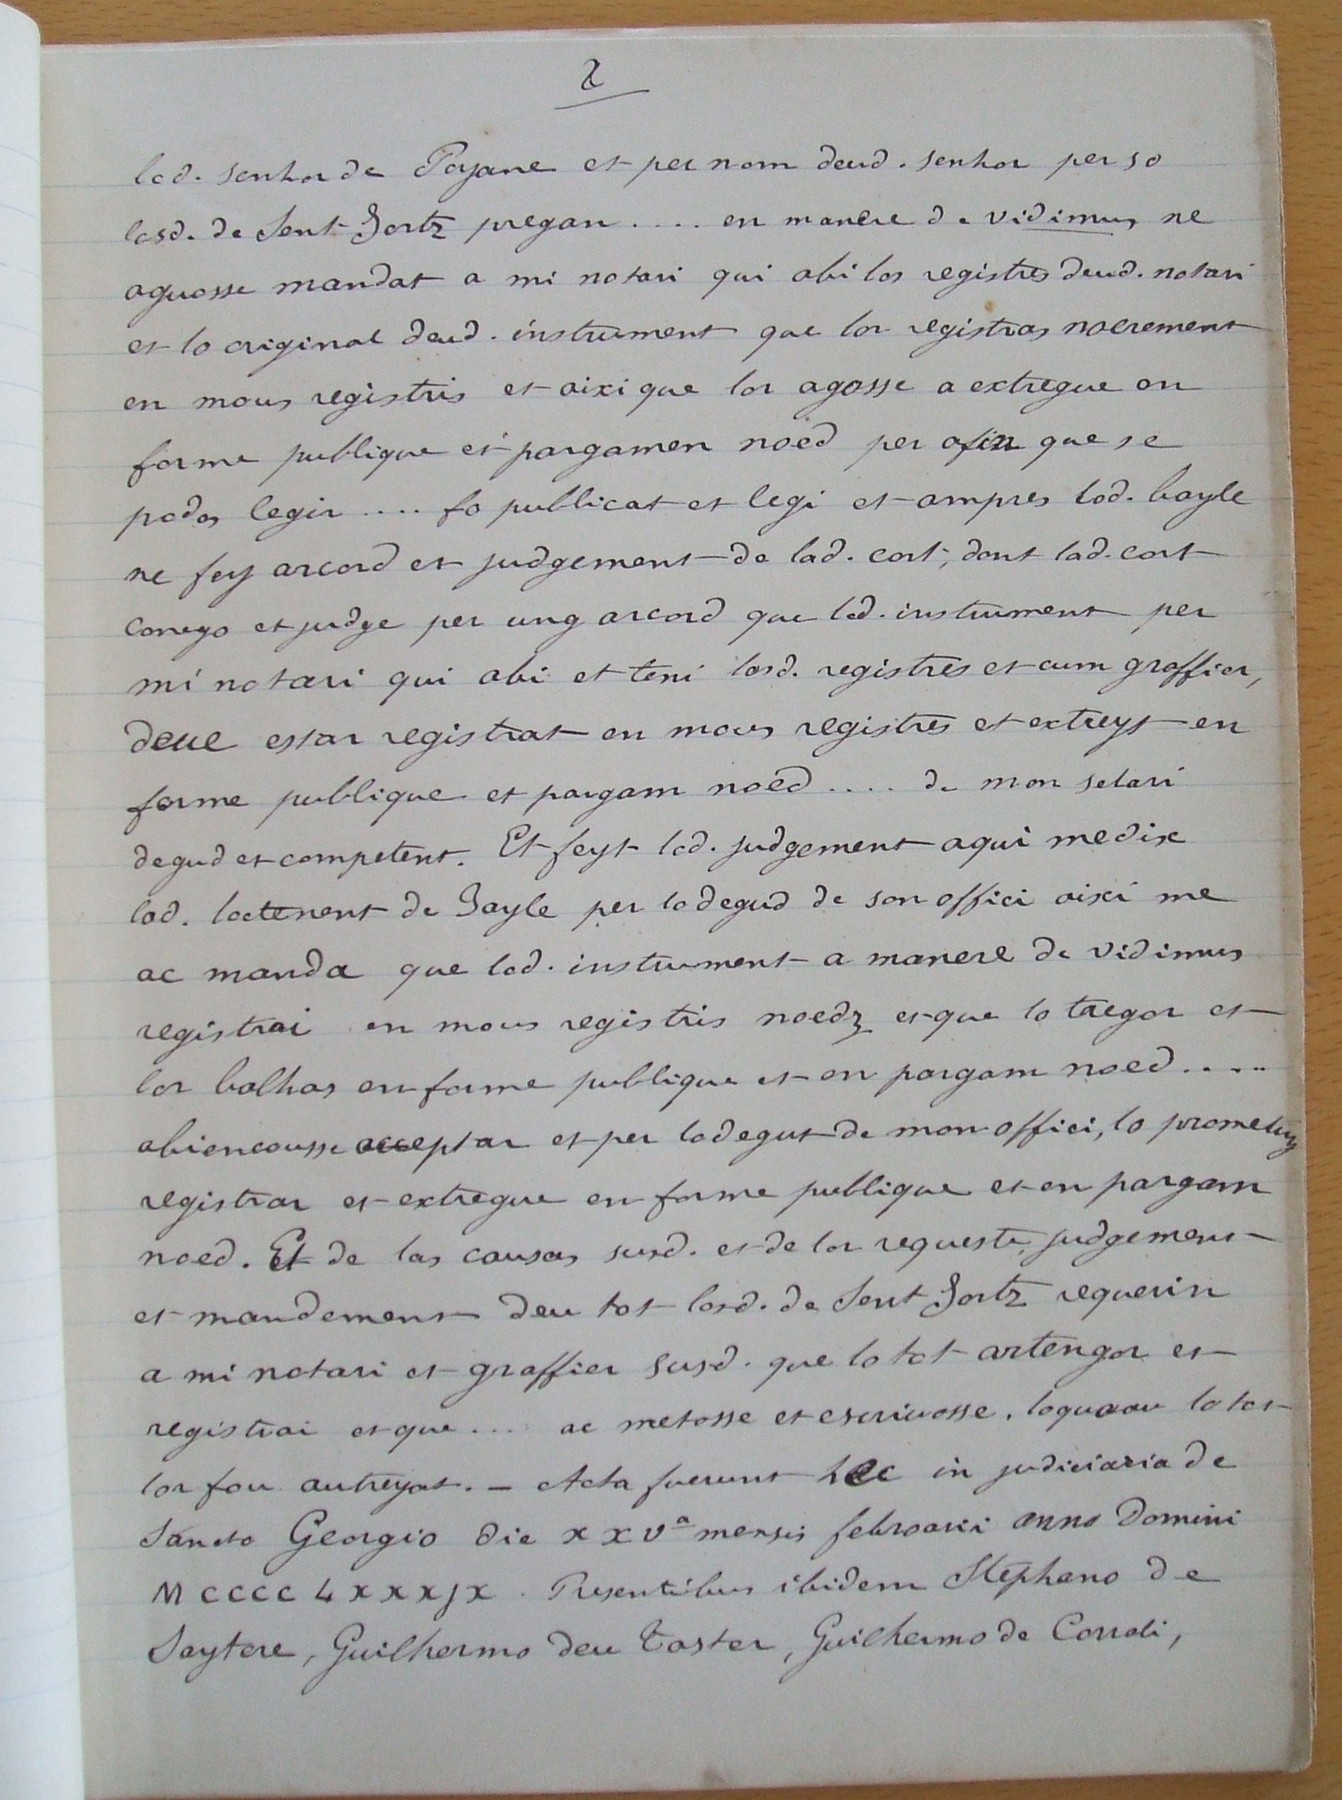 2
lod. senhor de Poyane et per nom deud. senhor per so
losd. de Sent Jortz pregan .... en manere de vidimus ne
aguosse mandat a mi notari qui abi los registres deud. notari
et lo original deud. instrument que lor registras noerement
en mous registris et aixi que lor agosse a extregue en
forme publique et pargamen noed per afin que se
podos legir .... fo publicat et legi et ampres lod. bayle
ne fey arcord et judgement de lad. cort, dont lad. cort
conego et judge per ung arcord que lod. instrument per
mi notari qui abi et teni losd. registres et cum graffier,
deue estar registrat en mous registres et extreyt en
forme publique et pargam noed .... de mon selari
degud et competent. Et feyt lod. judgement aqui medix
lod. loctenent de Bayle per lo degud de son offici aixi me
ac manda que lod. instrument a manere de vidimus
registrai en mous registris noedz et que lo tregor et
lor balhas en forme publique et en pargam noed .....
abiencousse acceptar et per lo degut de mon offici, lo prometuy
registrar et extregue en forme publique et en pargam
noed. Et de las causas susd. et de lor requeste, judgement
et mandement deu tot losd. de Sent Jortz requerin
a mi notari et graffier susd. que lo tot artengor et
registrai et que ... ac metosse et escriuosse, loquoau lo tot
lor fou autreyat. _ Acta fuerunt hec in judiciaria de
Sancto Georgio die xxvª mensis febroarii anno Domini
M CCCC L x x x j x . Presentibus ibidem Stephano de
Saytere, Guilhermo deu Taster, Guilhermo de Corrali,